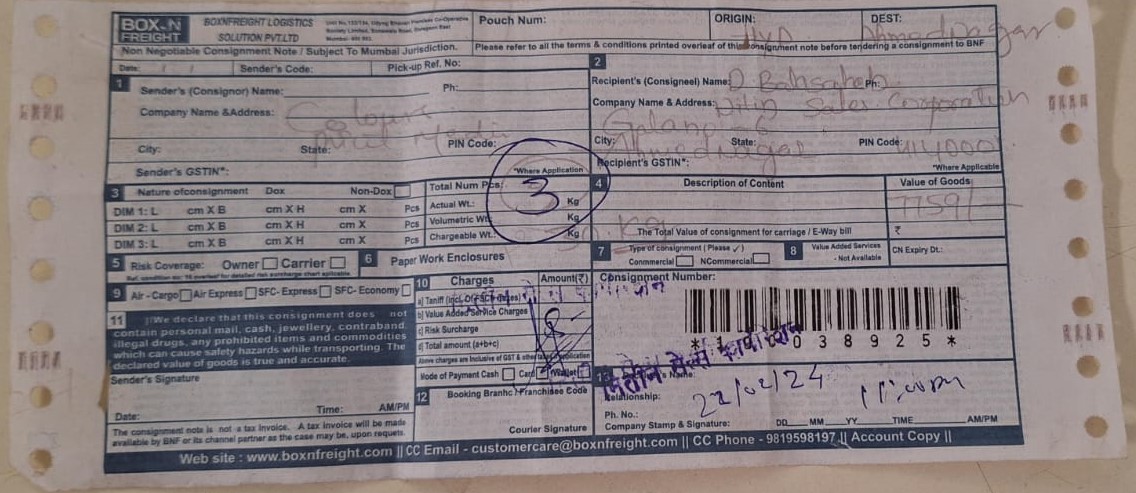 BOX-N FREIGHT
BOXNFREIGHT LOGISTICS SOLUTION PVT.LTD
Pouch Num:
ORIGIN: Hyd
DEST: Ahmednagar
Non Negotiable Consignment Note / Subject To Mumbai Jurisdiction.
Please refer to all the terms & conditions printed overleaf of this consignment note before tendering a consignment to BNF
Date: / / Sender's Code: Pick-up Ref. No:
1 Sender's (Consignor) Name: Ph:
Company Name &Address: Colours
City: State: PIN Code:
Sender's GSTIN*: *Where Application
2
Recipient's (Consigneel) Name: D. Bahsaheb Ph:
Company Name & Address: Dilip Sales Corporation
City: State: PIN Code: 414000
Ahmednagar
Recipient's GSTIN*: *Where Applicable
3 Nature ofconsignment Dox Non-Dox
DIM 1: L cm X B cm X H cm X Pcs
DIM 2: L cm X B cm X H cm X Pcs
DIM 3: L cm X B cm X H cm X Pcs
Total Num Pcs: 3
Actual Wt.: Kg
Volumetric Wt. Kg
Chargeable Wt.: Kg
4 Description of Content
Value of Goods
7759/-
The Total Value of consignment for carriage / E-Way bill ₹
5 Risk Coverage: Owner Carrier
6 Paper Work Enclosures
7 Type of consignment (Please ✓)
Conmmercial NCommercial
8 Value Added Services - Not Available
CN Expiry Dt.:
9 Air -Cargo Air Express SFC- Express SFC- Economy
10 Charges Amount(₹)
b) Value Added Service Charges
c) Risk Surcharge
d) Total amount (a+b+c)
Mode of Payment Cash Card Wallet
11 I/We declare that this consignment does not
contain personal mail, cash, jewellery, contraband,
illegal drugs, any prohibited items and commodities
which can cause safety hazards while transporting. The
declared value of goods is true and accurate.
Sender's Signature
Date: Time: AM/PM
The consignment note is not a tax invoice. A tax invoice will be made
available by BNF or its channel partner as the case may be, upon requets.
12 Booking Branhc / Franchisee Code
Courier Signature
Consignment Number:
0 3 8 9 2 5 *
Relationship:
22/02/24
Ph. No.:
Company Stamp & Signature: DD MM YY TIME AM/PM
Web site : www.boxnfreight.com || CC Email - customercare@boxnfreight.com || CC Phone - 9819598197 || Account Copy ||